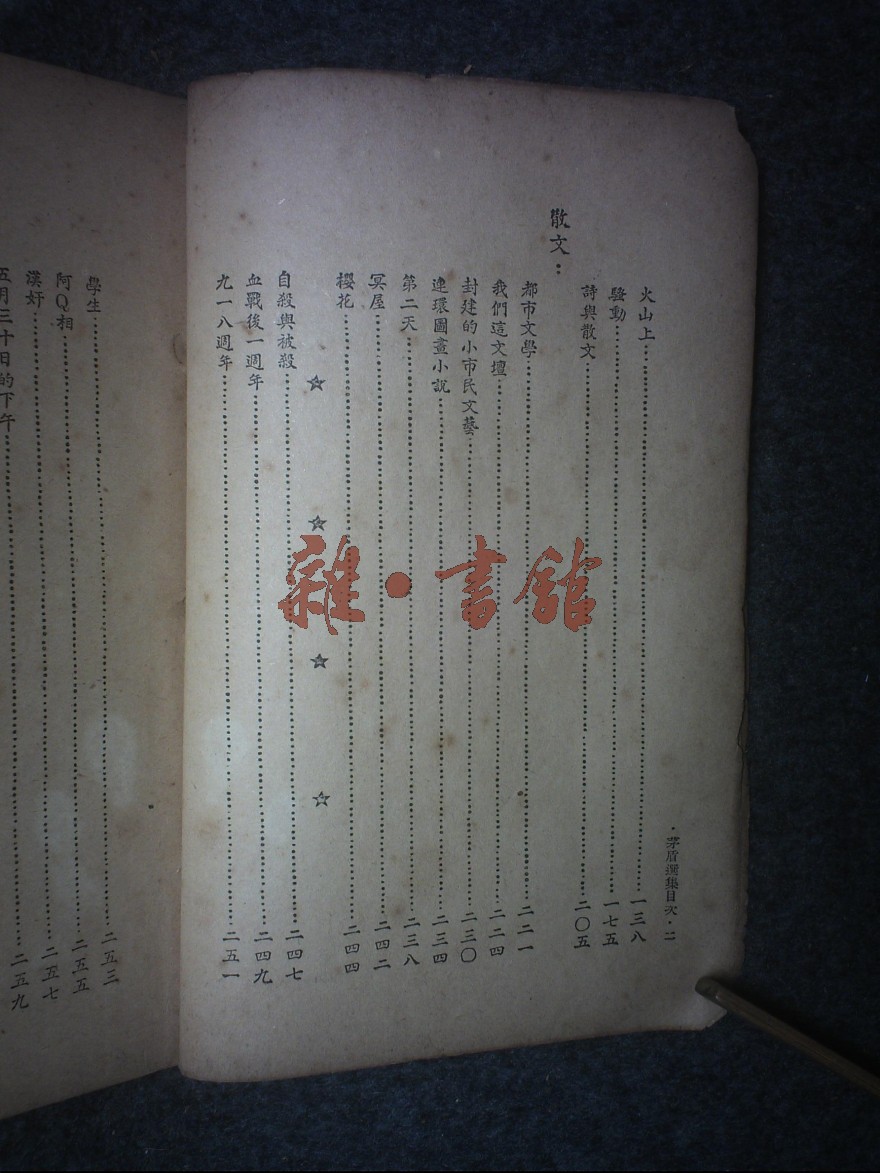 ・茅盾選集目次・二
火山上……一三八
騷動……一七五
詩與散文……二〇五
散文：
都市文學……二二一
我們這文壇……二二四
封建的小市民文藝……二三〇
連環圖畫小說……二三四
第二天……二三八
冥屋……二四二
櫻花……二四四
☆ ☆ ☆ ☆
自殺與被殺……二四七
血戰後一週年……二四九
九一八週年……二五一
學生……二五三
阿Q相……二五五
漢奸……二五七
五月三十日的下午……二五九
雜・書館